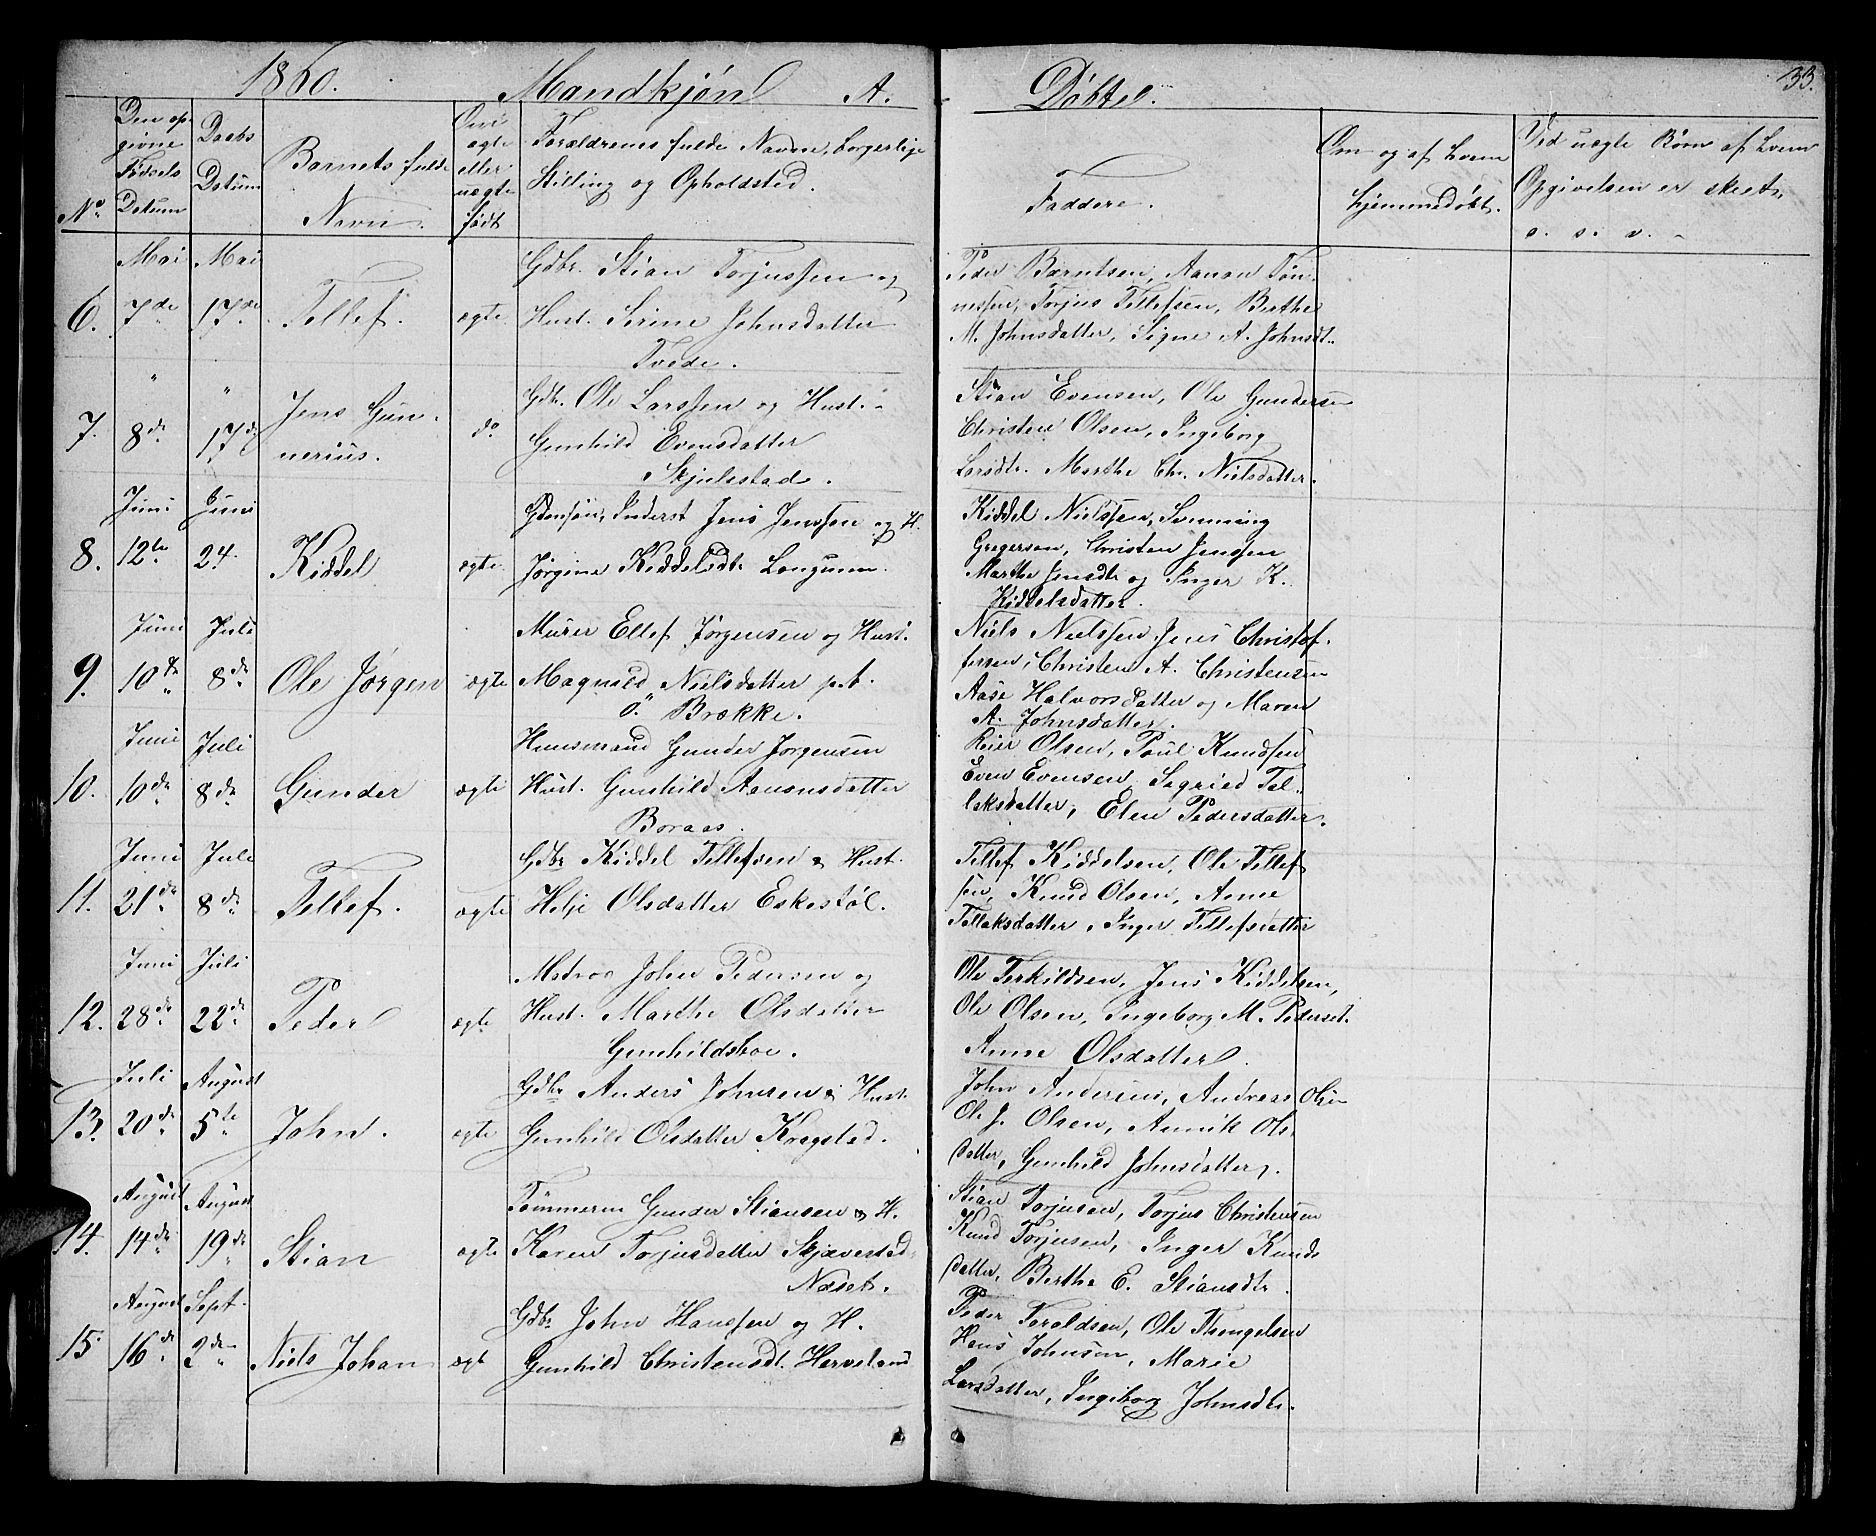 1860. Mandkjøn A.
Døbte.
33.
No.
Den op-
givne
Fødsels
Datum
Daabs
Datum
Barnets fulde
Navn.
Om
ægte
eller
uægte
født
Forældrenes fulde Navne, borgerlige
Stilling og Opholdsted.
Faddere.
Om og af hvem
hjemmedøbt.
Ved uægte Børn af hvem
Opgivelsen er skeet,
o. s. v.
Mai Mai
6. 7de 17de Tellef. ægte
Gdbr. Stian Torjussen og
Hust. Serine Johnsdatter
Tvede.
Peder Berntsen, Aanon Tøn-
nessen, Torjus Tellefsen, Berthe
M. Johnsdatter, Signe A. Johnsdt.
" "
7. 8de 17de Jens Gun-
nerius. do
Gdb. Ole Larssen og Hust.
Gunhild Evensdatter
Skjulestad.
Stian Evensen, Ole Gundersen
Christen Olsen, Ingeborg
Larsdtr. Marthe Chr. Nielsdatter.
Juni Juni
8. 12te 24. Kiddel ægte
Gdmsøn, Inderst Jens Jenssen og H.
Jørgine Kiddelsdt. Longum.
Kiddel Nielssen, Svenning
Gregersen, Christen Jenssen
Marthe Jensdt. og Inger K.
Kiddelsdatter.
Juni Juli
9. 10de 8de Ole Jørgen ægte
Murer Ellef Jørgensen og Hust.
Magnild Nielsdatter p.t.
Brække.
Niels Nielssen, Jens Christof-
fersen, Christen A. Christensen
Aase Halvorsdatter og Maren
A. Johnsdatter.
Juni Juli
10. 10de 8de Gunder ægte
Huusmand Gunder Jørgensen
Hust. Gunhild Aanonsdatter
Boraas.
Reier Olsen, Poul Knudsen
Even Evensen, Segried Tel-
leksdatter, Elen Pedersdatter.
Juni Juli
11. 21de 8de Tellef. ægte
Gdbr Kiddel Tellefsen & Hust.
Helje Olsdatter Eskestøl.
Tellef Kiddelsen, Ole Tellef
sen, Knud Olsen, Anne
Tellaksdatter, Inger Tellefsdatter
Juni Juli
12. 28de 22de Peder ægte
Matros John Pedersen og
Hust. Marthe Olsdatter
Gunhildsboe.
Ole Terkildsen, Jens Kiddelsen,
Ole Olsen, Ingeborg M. Pedersdt.
Anne Olsdatter.
Juli August
13. 20de 5te John. ægte
Gdbr Anders Johnsen & Hust.
Gunhild Olsdatter Kragsted.
John Andersen, Andreas Olsen
Ole J. Olsen, Annik Ols-
datter, Gunhild Johnsdatter.
August August
14. 14de 19de Stian ægte
Tømmerm Gunder Stiansen & H.
Karen Torjusdatter Skjævested-
Næset.
Stian Torjusen, Torjus Christensen
Knud Torjusen, Inger Knuds
datter, Berthe E. Stiansdtr.
August Sept.
15. 16de 2den Niels Johan ægt
Gdbr John Hanssen og H.
Gunhild Christensdt. Herveland
Peder Toroldsen, Ole Thengelsen
Hans Johnsen, Marie
Larsdatter, Ingeborg Johnsdtr.